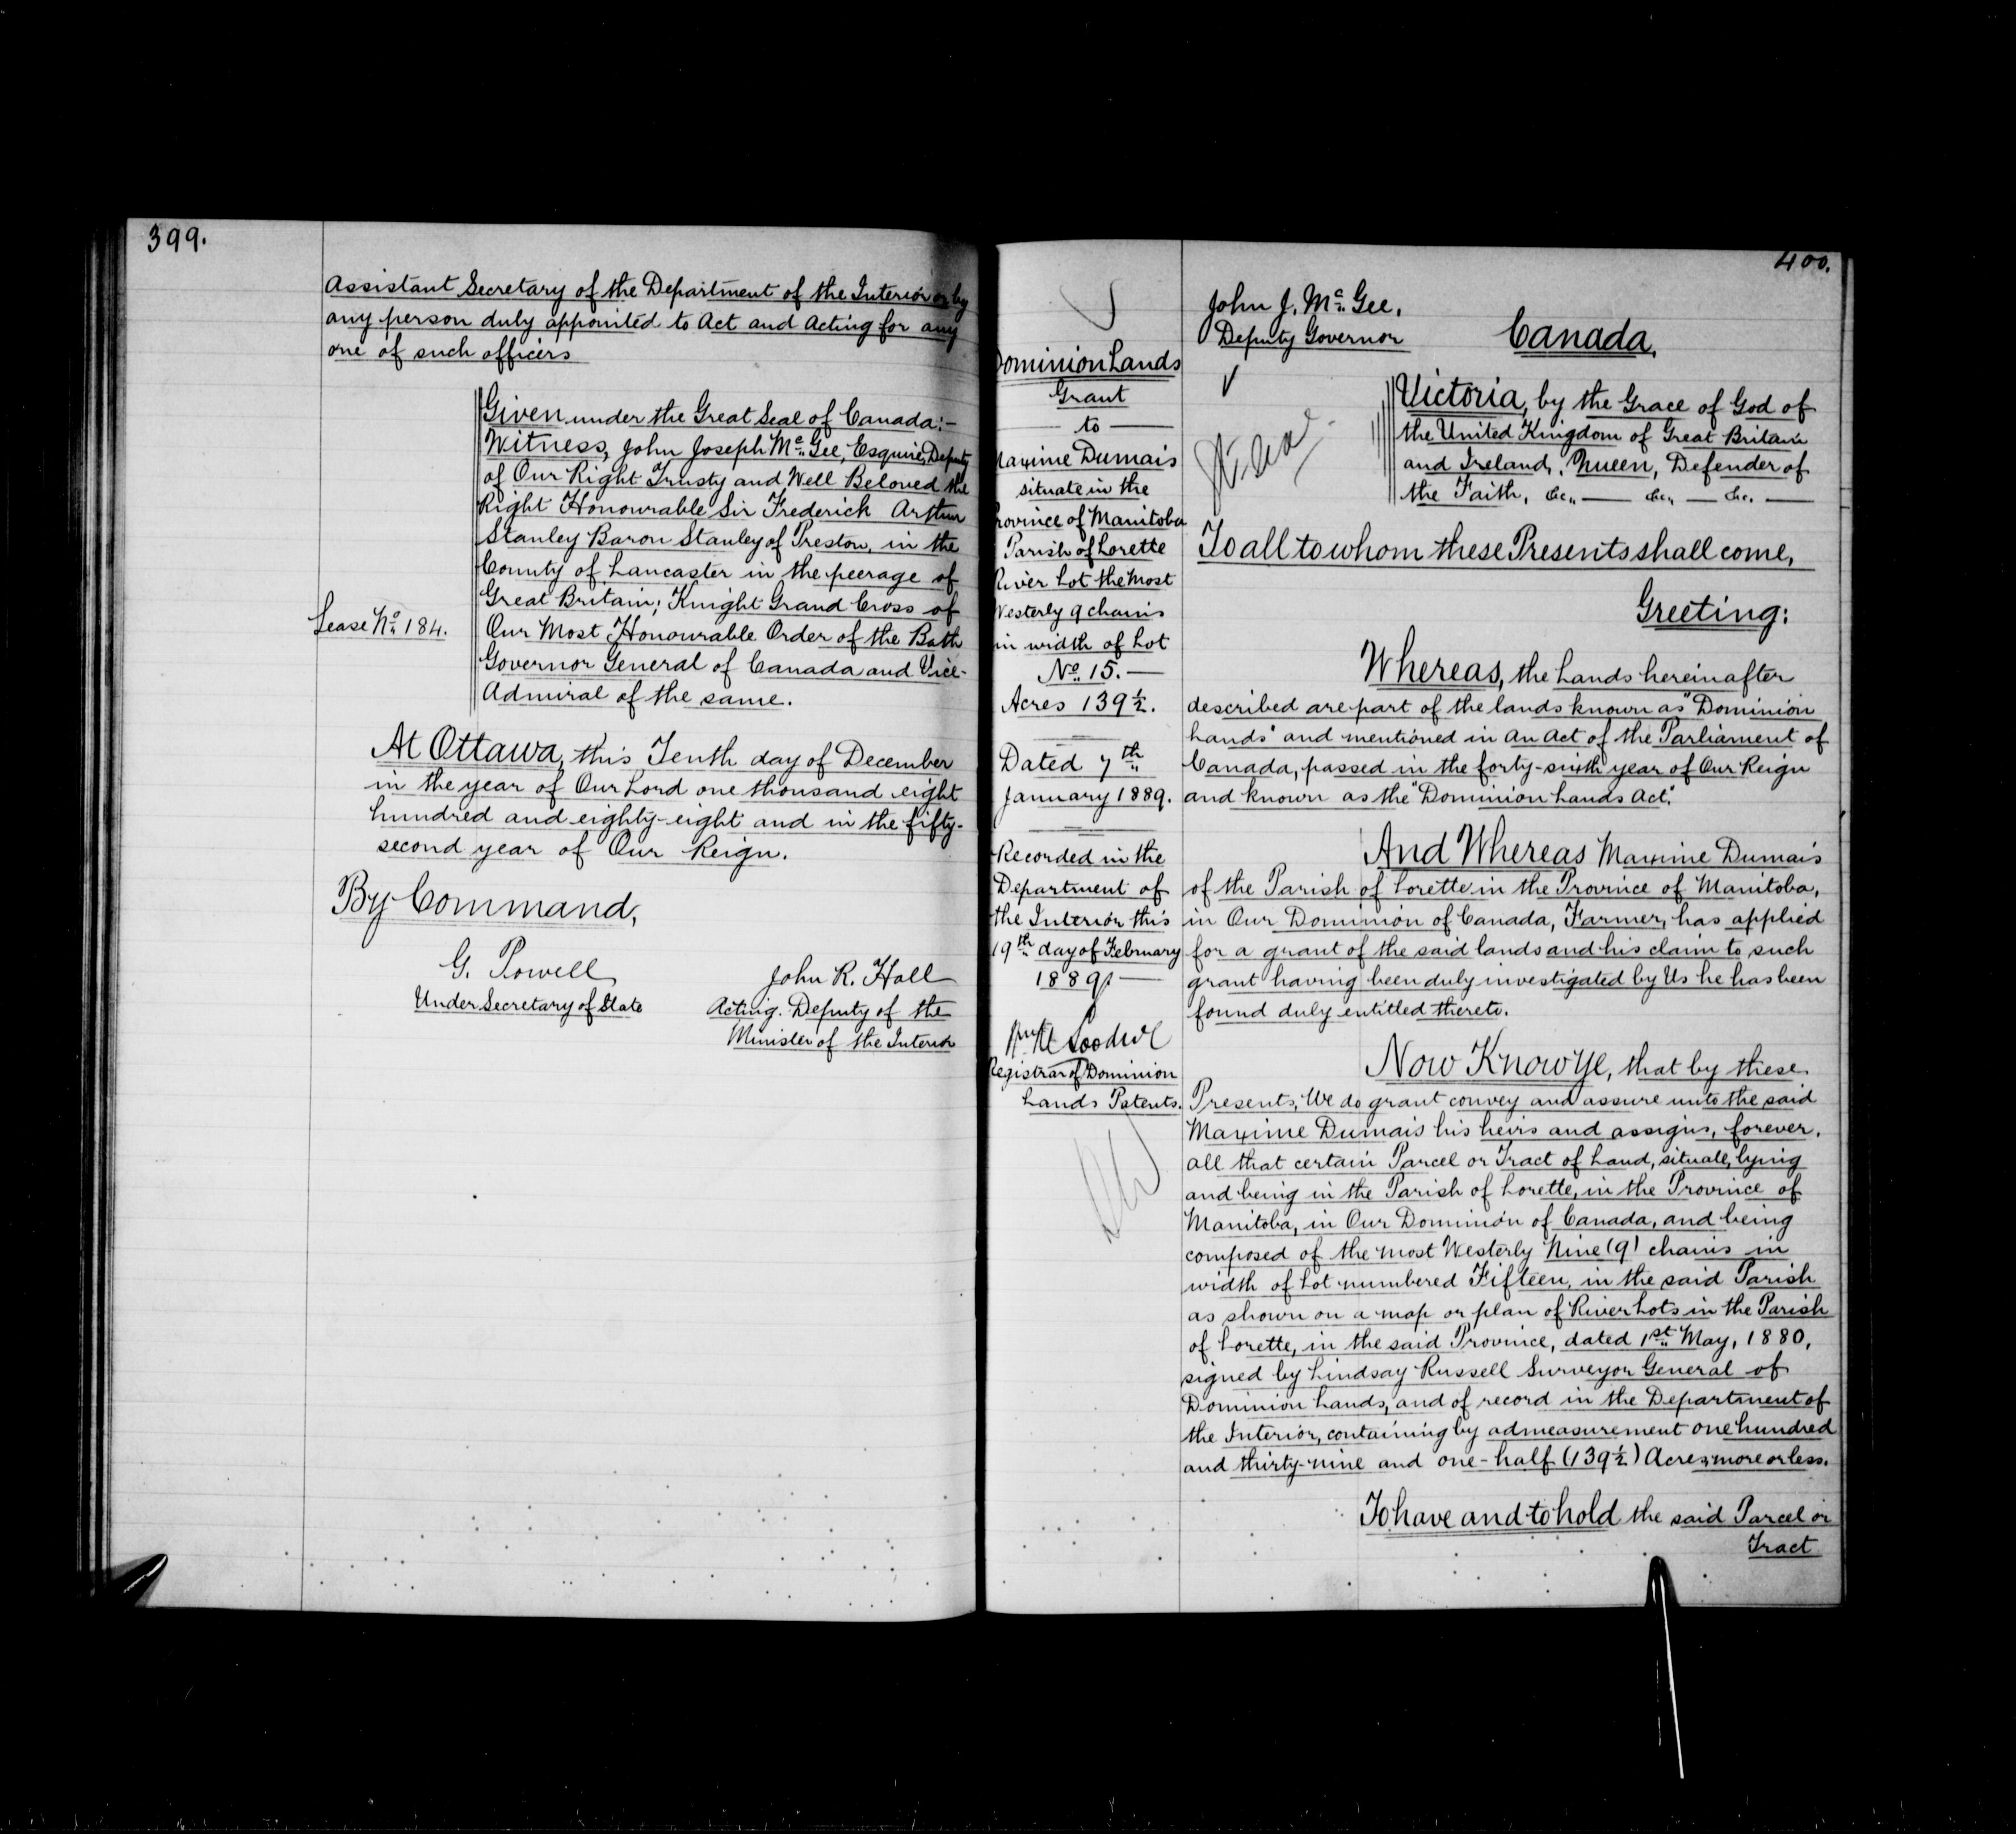 399.
Assistant Secretary of the Department of the Interior or by
any person duly appointed to Act and Acting for any
one of such officers
Given under the Great Seal of Canada:-
Witness, John Joseph Mc. Gee, Esquire, Deputy
of Our Right Trusty and Well Beloved the
Right Honourable Sir Frederick Arthur
Stanley Baron Stanley of Preston, in the
County of Lancaster in the peerage of
Great Britain; Knight Grand Cross of
Lease No. 184.
Our Most Honourable Order of the Bath
Governor General of Canada and Vice-
Admiral of the same.
At Ottawa, this Tenth day of December
in the year of Our Lord one thousand eight
hundred and eighty-eight and in the fifty-
second year of Our Reign.
By Command,
G. Powell
Under Secretary of State
John R. Hall
Acting. Deputy of the
Minister of the Interior
400.
Dominion Lands
Grant
to
Maxime Dumais
situate in the
Province of Manitoba
Parish of Lorette
River Lot the Most
Westerly 9 chains
in width of Lot
No. 15.
Acres 139 1/2.
Dated 7th
January 1889.
Recorded in the
Department of
the Interior this
19th day of February
1889.
Registrar of Dominion
Lands Patents.
John J. Mc. Gee.
Deputy Governor
Canada.
Victoria, by the Grace of God of
the United Kingdom of Great Britain
and Ireland, Queen, Defender of
the Faith, &c., — &c., — &c. —
To all to whom these Presents shall come,
Greeting:
Whereas, the Lands hereinafter
described are part of the lands known as "Dominion
Lands" and mentioned in An Act of the Parliament of
Canada, passed in the forty-sixth year of Our Reign
and known as the "Dominion Lands Act".
And Whereas Maxime Dumais
of the Parish of Lorette in the Province of Manitoba,
in Our Dominion of Canada, Farmer, has applied
for a grant of the said lands and his claim to such
grant having been duly investigated by Us he has been
found duly entitled thereto.
Now Know Ye, that by these
Presents, We do grant convey and assure unto the said
Maxime Dumais his heirs and assigns, forever,
all that certain Parcel or Tract of Land, situate, lying
and being in the Parish of Lorette, in the Province of
Manitoba, in Our Dominion of Canada, and being
composed of the most Westerly Nine (9) chains in
width of Lot numbered Fifteen, in the said Parish
as shown on a map or plan of River Lots in the Parish
of Lorette, in the said Province, dated 1st May, 1880,
signed by Lindsay Russell Surveyor General of
Dominion Lands, and of record in the Department of
the Interior, containing by admeasurement one hundred
and thirty-nine and one-half (139 1/2) Acres, more or less.
To have and to hold the said Parcel or
Tract